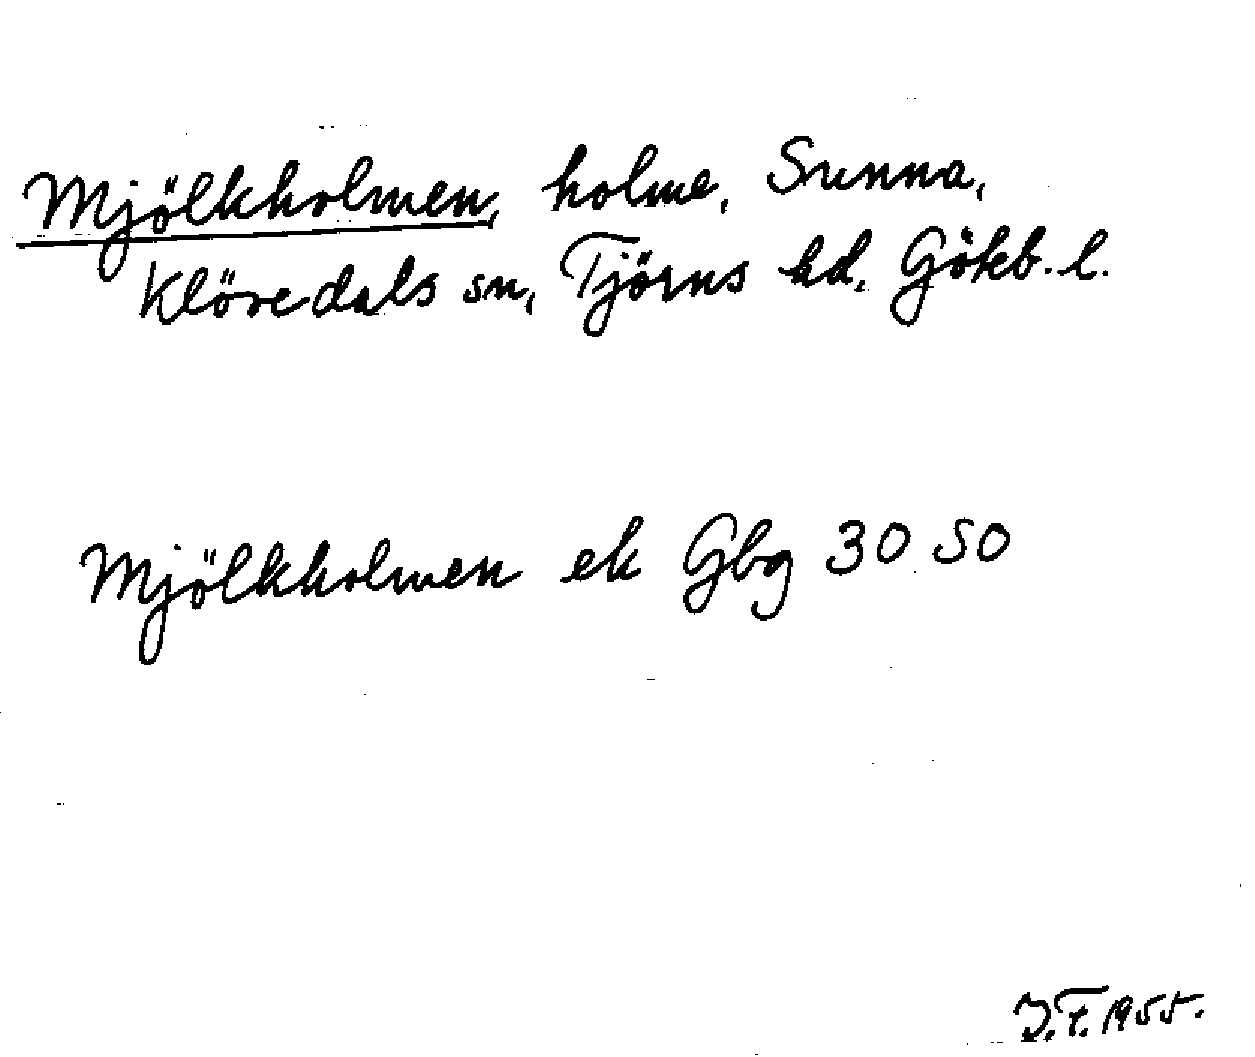 Mjölkholmen, holme, Sunna,
Klövedals sn, Tjörns hd, Gökb. l.
Mjölkholmen ek Gbg 30 SO
J.F. 1955.